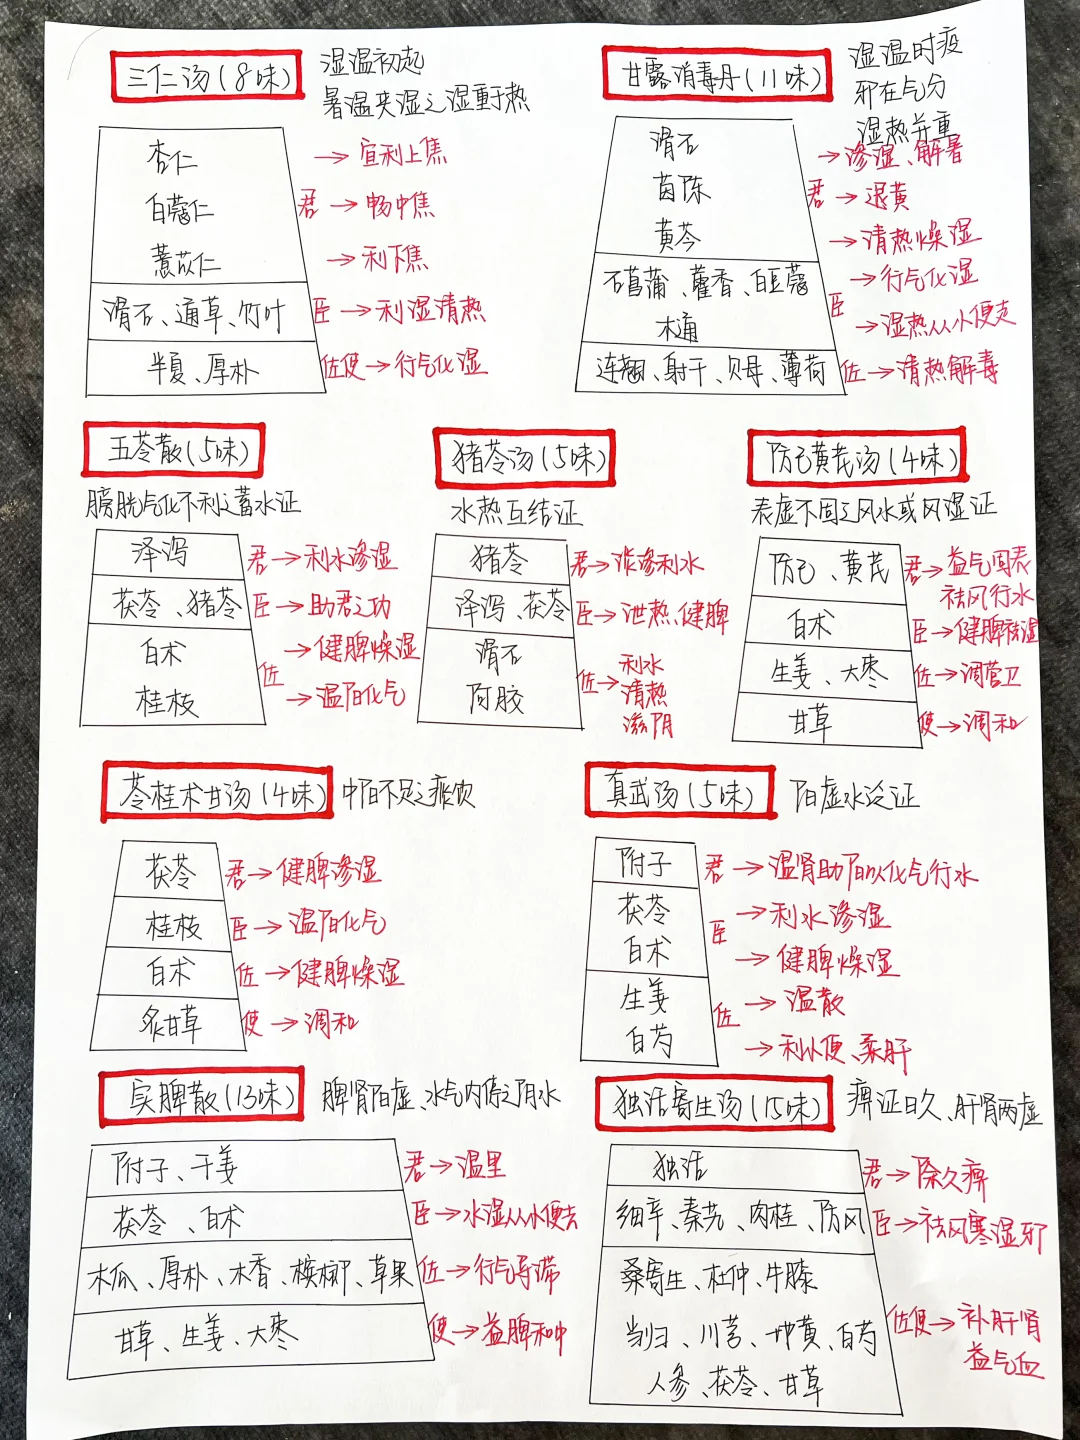 三仁汤(8味)
湿温初起
暑温夹湿之湿重于热
杏仁
→宣利上焦
白蔻仁
君→畅中焦
薏苡仁
→利下焦
滑石、通草、竹叶
臣→利湿清热
半夏、厚朴
佐使→行气化湿
甘露消毒丹(11味)
湿温时疫
邪在气分
湿热并重
滑石
→渗湿、解暑
茵陈
君→退黄
黄芩
→清热燥湿
石菖蒲、藿香、白豆蔻
→行气化湿
臣
木通
→湿热从小便走
连翘、射干、贝母、薄荷
佐→清热解毒
五苓散(5味)
膀胱气化不利之蓄水证
泽泻
君→利水渗湿
茯苓、猪苓
臣→助君之功
白术
→健脾燥湿
佐
桂枝
→温阳化气
猪苓汤(5味)
水热互结证
猪苓
君→淡渗利水
泽泻、茯苓
臣→泄热、健脾
滑石
阿胶
佐→利水
清热
滋阴
防己黄芪汤(4味)
表虚不固之风水或风湿证
防己、黄芪
君→益气固表
祛风行水
白术
臣→健脾祛湿
生姜、大枣
佐→调营卫
甘草
使→调和
苓桂术甘汤(4味)
中阳不足之痰饮
茯苓
君→健脾渗湿
桂枝
臣→温阳化气
白术
佐→健脾燥湿
炙甘草
使→调和
真武汤(5味)
阳虚水泛证
附子
君→温肾助阳以化气行水
茯苓
→利水渗湿
臣
白术
→健脾燥湿
生姜
→温散
佐
白芍
→利小便、柔肝
实脾散(13味)
脾肾阳虚、水气内停之阴水
附子、干姜
君→温里
茯苓、白术
臣→水湿从小便去
木瓜、厚朴、木香、槟榔、草果
佐→行气导滞
甘草、生姜、大枣
使→益脾和中
独活寄生汤(15味)
痹证日久、肝肾两虚
独活
君→除久痹
细辛、秦艽、肉桂、防风
臣→祛风寒湿邪
桑寄生、杜仲、牛膝
当归、川芎、地黄、白芍
人参、茯苓、甘草
佐使→补肝肾
益气血